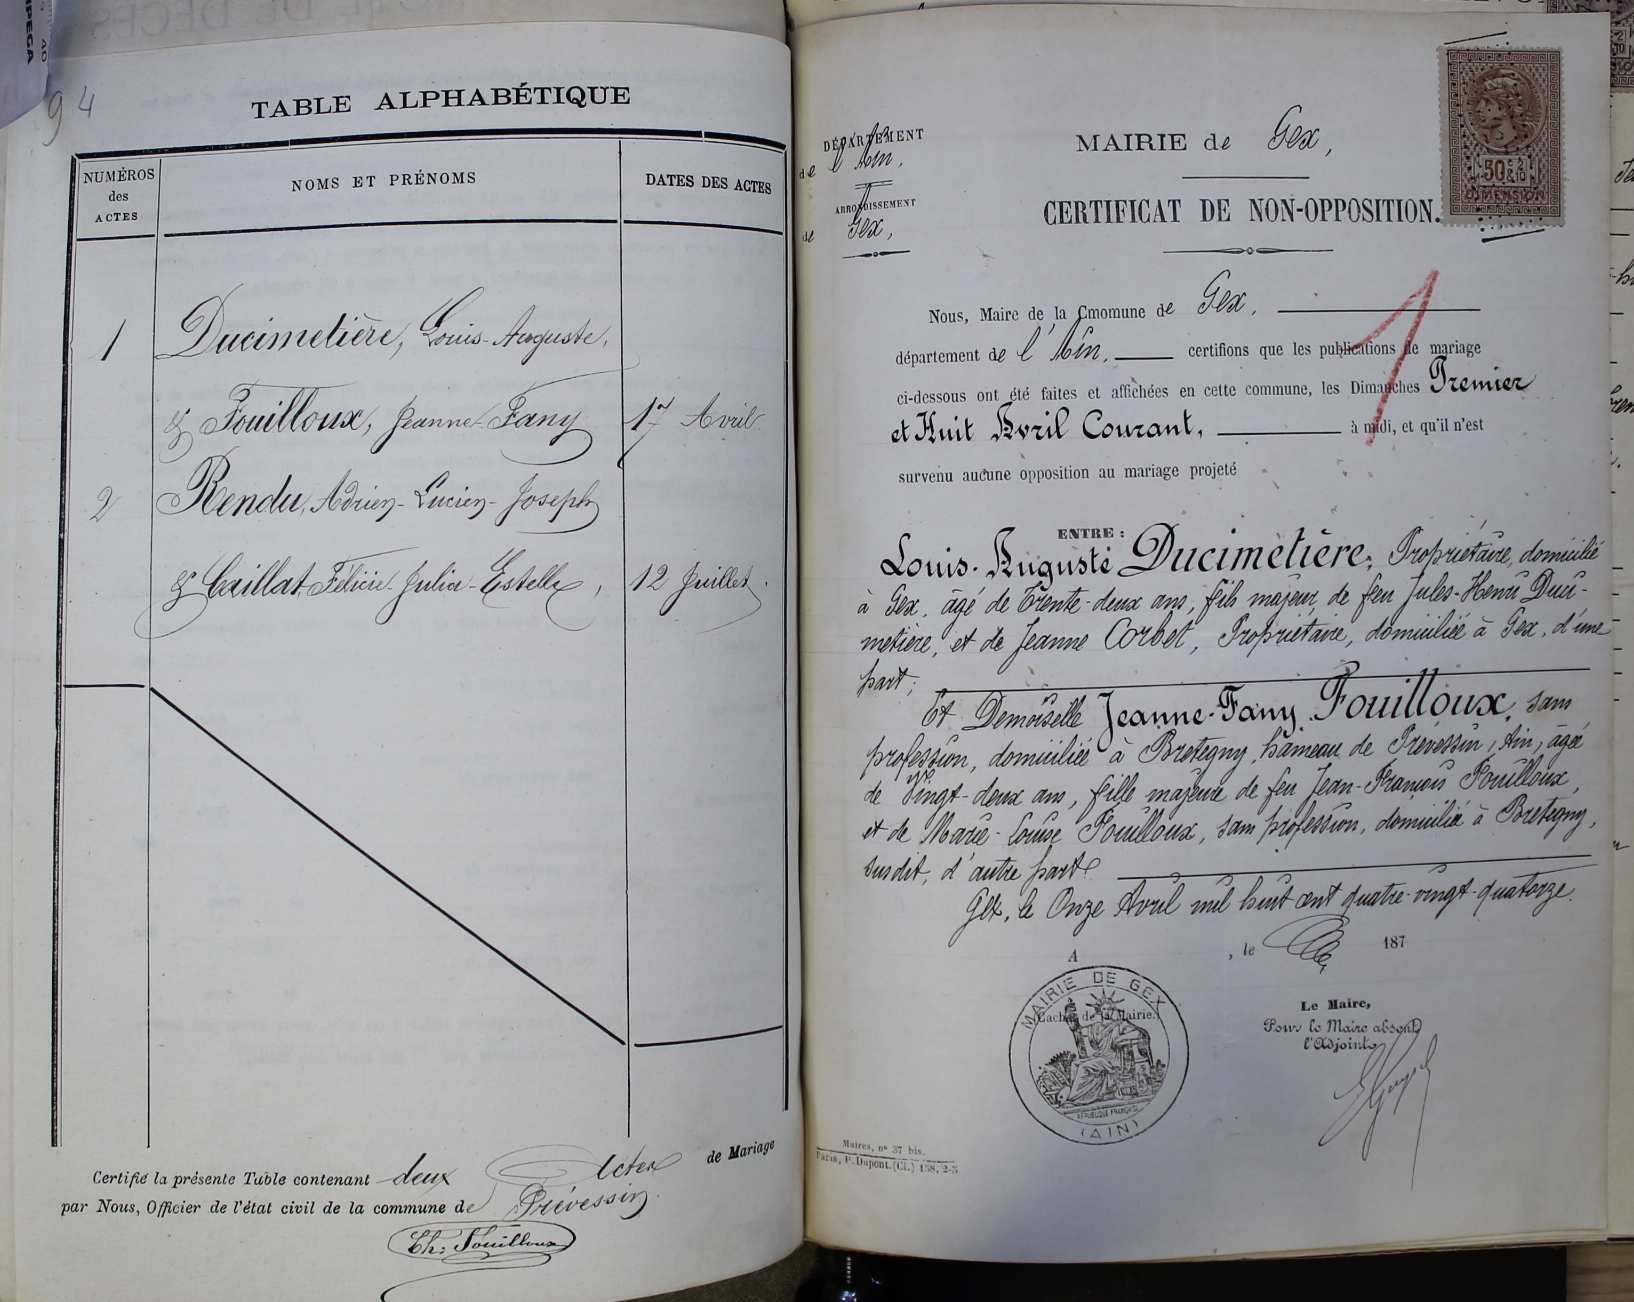 94
TABLE ALPHABÉTIQUE
NUMÉROS
des
ACTES
NOMS ET PRÉNOMS
DATES DES ACTES
1 Ducimetière, Louis-Auguste,
& Fouilloux, Jeanne-Fany 17 Avril.
2 Rendu, Adrien-Lucien-Joseph
& Caillat Félicie-Julia-Estelle, 12 Juillet.
Certifié la présente Table contenant deux Actes de Mariage
par Nous, Officier de l'état civil de la commune de Prévessin.
Ch: Fouilloux
DÉPARTEMENT
de l'Ain,
ARRONDISSEMENT
de Gex,
MAIRIE de Gex,
CERTIFICAT DE NON-OPPOSITION.
50 c.
DIMENSION
1
Nous, Maire de la Cmomune de Gex,
département de l'Ain, certifions que les publications de mariage
ci-dessous ont été faites et affichées en cette commune, les Dimanches Premier
et Huit Avril Courant, à midi, et qu'il n'est
survenu aucune opposition au mariage projeté
ENTRE:
Louis-Auguste Ducimetière, Propriétaire, domicilié
à Gex, âgé de Trente-deux ans, fils majeur de feu Jules-Henri Duci-
metière, et de Jeanne Corbet, Propriétaire, domiciliée à Gex, d'une
part;
Et Demoiselle Jeanne-Fany Fouilloux, sans
profession, domiciliée à Bretegny, hameau de Prévessin, Ain, âgée
de Vingt-deux ans, fille majeure de feu Jean-François Fouilloux,
et de Marie-Louise Fouilloux, sans profession, domiciliée à Bretegny,
susdit, d'autre part.
Gex, le Onze Avril mil huit cent quatre-vingt-quatorze.
A , le 187
MAIRIE DE GEX
(Cachet de la Mairie.)
RÉPUBLIQUE FRANÇAISE
(AIN)
Le Maire,
Pour le Maire absent
l'Adjoint,
Maires, n° 37 bis.
Paris, P. Dupont. (Cl.) 158, 2-5